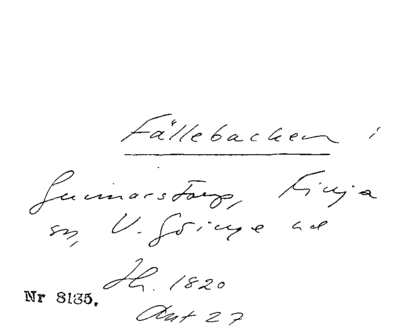 Fällebacken i
Gunnarstorp, Finja
sn, V. Göinge hd
Jh. 1820
Nr 8135.
Akt 27